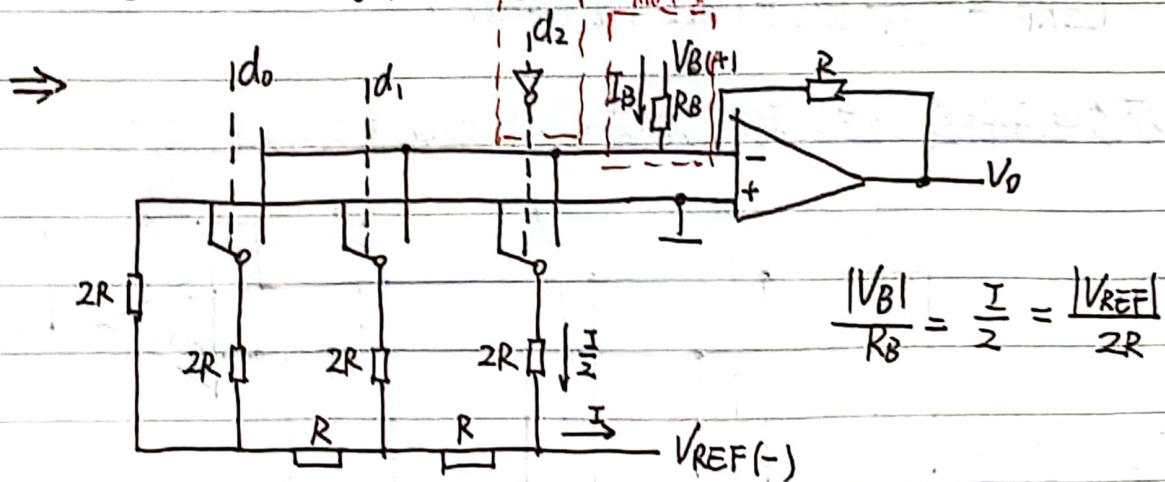 ⇒
d₀
d₁
d₂
I_B
V_B(+)
R_B
R
−
+
V_O
2R
2R
2R
2R
I/2
R
R
I
V_REF(−)
|V_B|/R_B = I/2 = |V_REF|/2R